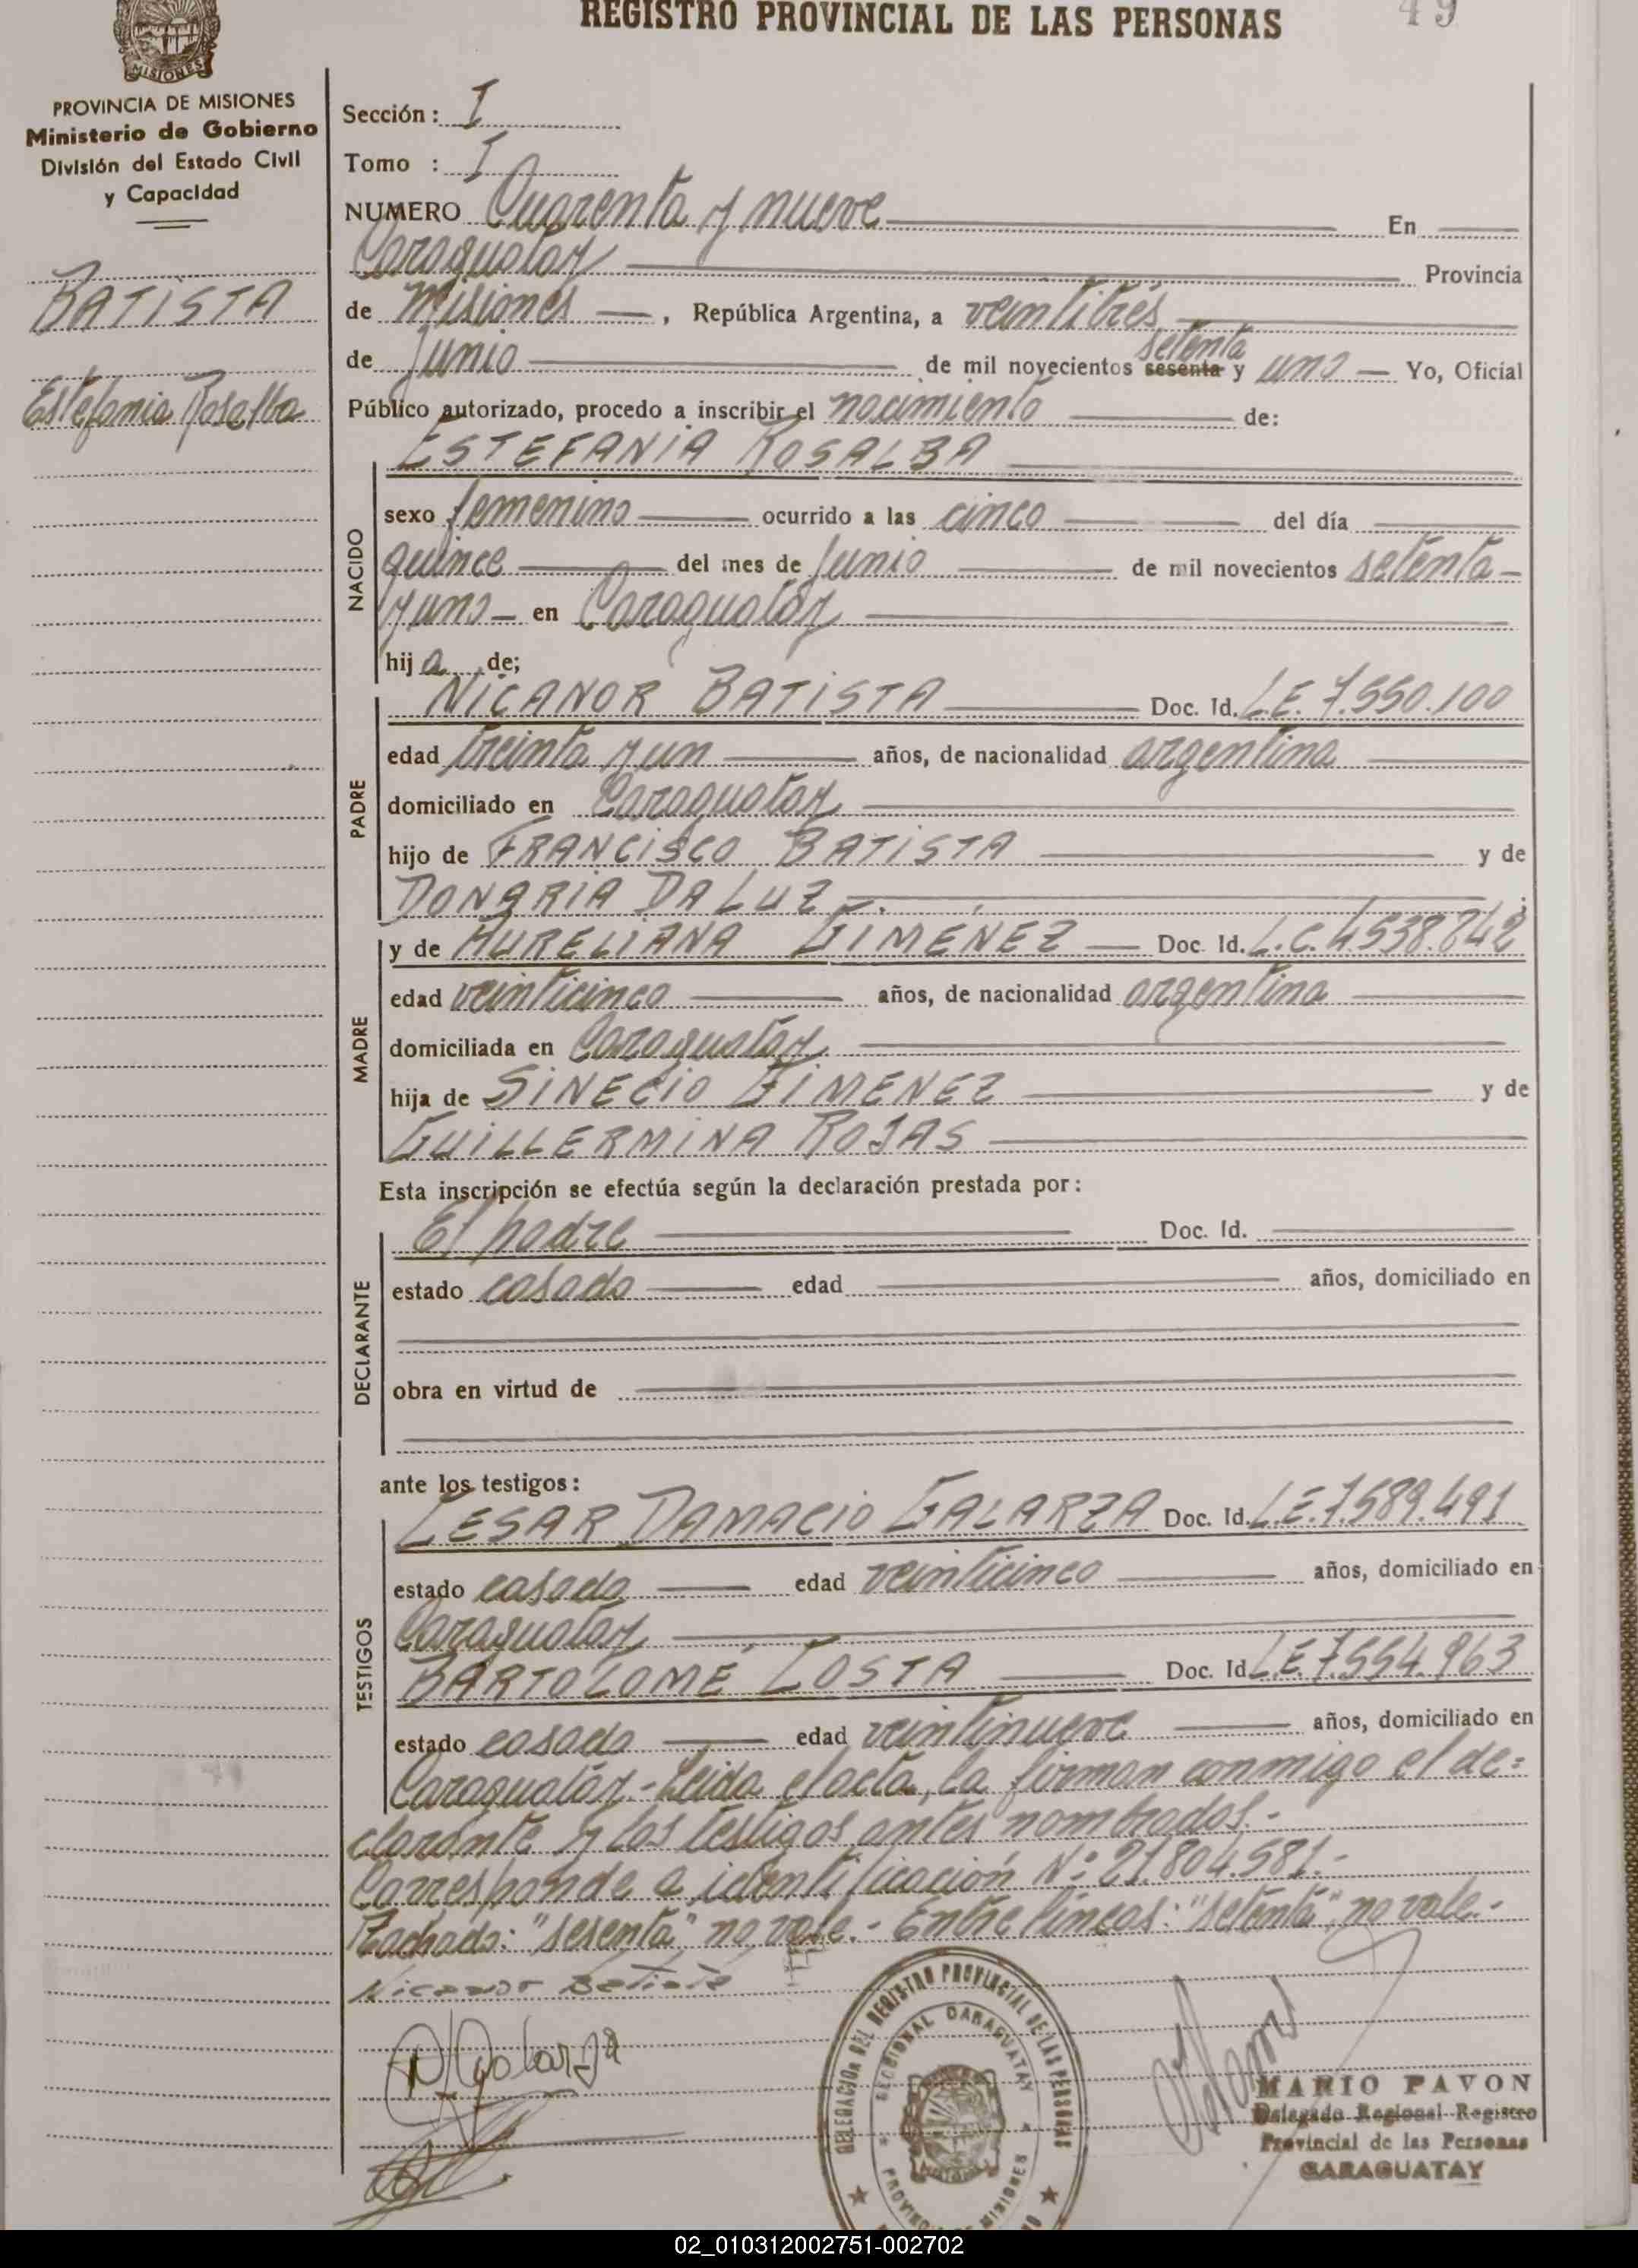 REGISTRO PROVINCIAL DE LAS PERSONAS 49
MISIONES
PROVINCIA DE MISIONES
Ministerio de Gobierno
División del Estado Civil
y Capacidad
BATISTA
Estefania Rosalba
Sección: I
Tomo : I
NUMERO Cuarenta y nueve En
Caraguatay Provincia
de Misiones, República Argentina, a veintitrés
setenta
de Junio de mil novecientos sesenta y uno Yo, Oficial
Público autorizado, procedo a inscribir el nacimiento de:
ESTEFANIA ROSALBA
NACIDO
sexo femenino ocurrido a las cinco del día
quince del mes de Junio de mil novecientos setenta
y uno en Caraguatay
hija de;
PADRE
NICANOR BATISTA Doc. Id. L.E. 7.550.100
edad treinta y un años, de nacionalidad argentina
domiciliado en Caraguatay
hijo de FRANCISCO BATISTA y de
DONARIA DA LUZ
MADRE
y de AURELIANA GIMÉNEZ Doc. Id. L.C. 4.538.842
edad veinticinco años, de nacionalidad argentina
domiciliada en Caraguatay
hija de SINECIO GIMENEZ y de
GUILLERMINA ROJAS
Esta inscripción se efectúa según la declaración prestada por:
DECLARANTE
El padre Doc. Id.
estado casado edad años, domiciliado en
obra en virtud de
ante los testigos:
TESTIGOS
CESAR DAMACIO GALARZA Doc. Id. L.E. 7.589.491
estado casado edad veinticinco años, domiciliado en
Caraguatay
BARTOLOMÉ COSTA Doc. Id L.E. 7.554.963
estado casado edad veintinueve años, domiciliado en
Caraguatay.- Leida el acta, la firman conmigo el de=
clarante y los testigos antes nombrados.-
Corresponde a identificación N° 21.804.581.-
Tachado: "sesenta" no vale.- Entre líneas: "setenta", no vale.-
Nicanor Batista
D Galarza
DELEGACION DEL REGISTRO PROVINCIAL DE LAS PERSONAS
SECCIONAL CARAGUATAY
PROVINCIA DE MISIONES
MARIO PAVON
Delegado Regional Registro
Provincial de las Personas
CARAGUATAY
02_010312002751-002702